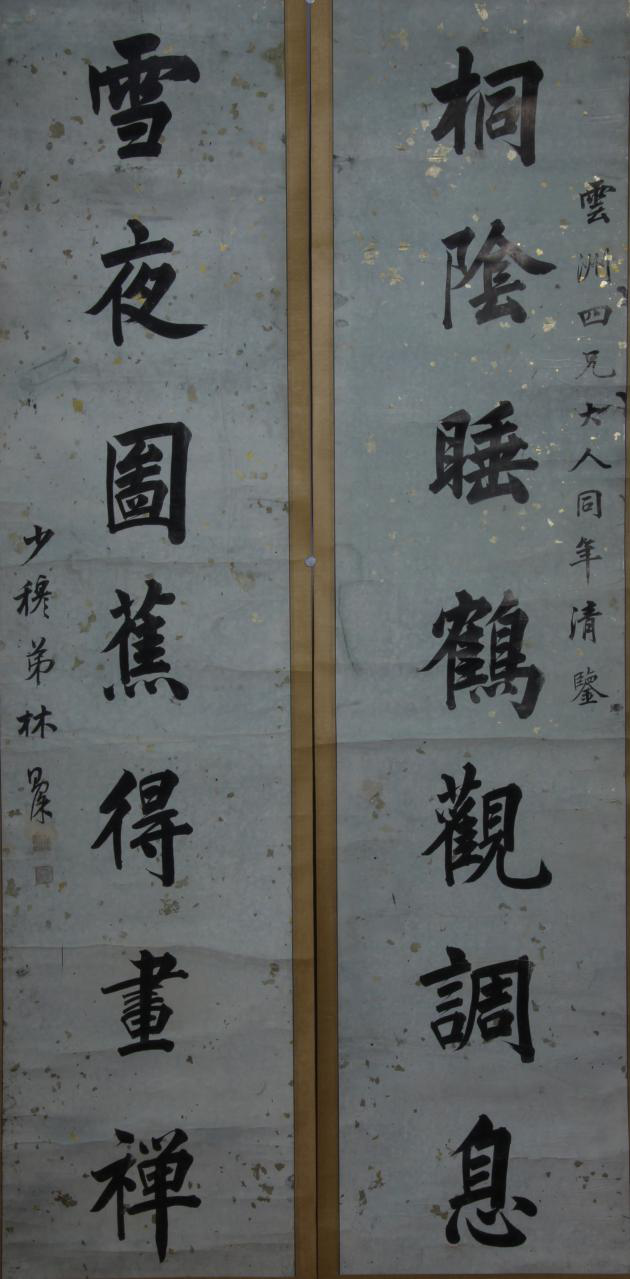 雲洲四兄大人同年清鑒
桐陰睡鶴觀調息
雪夜圖蕉得畫禪
少穆弟林